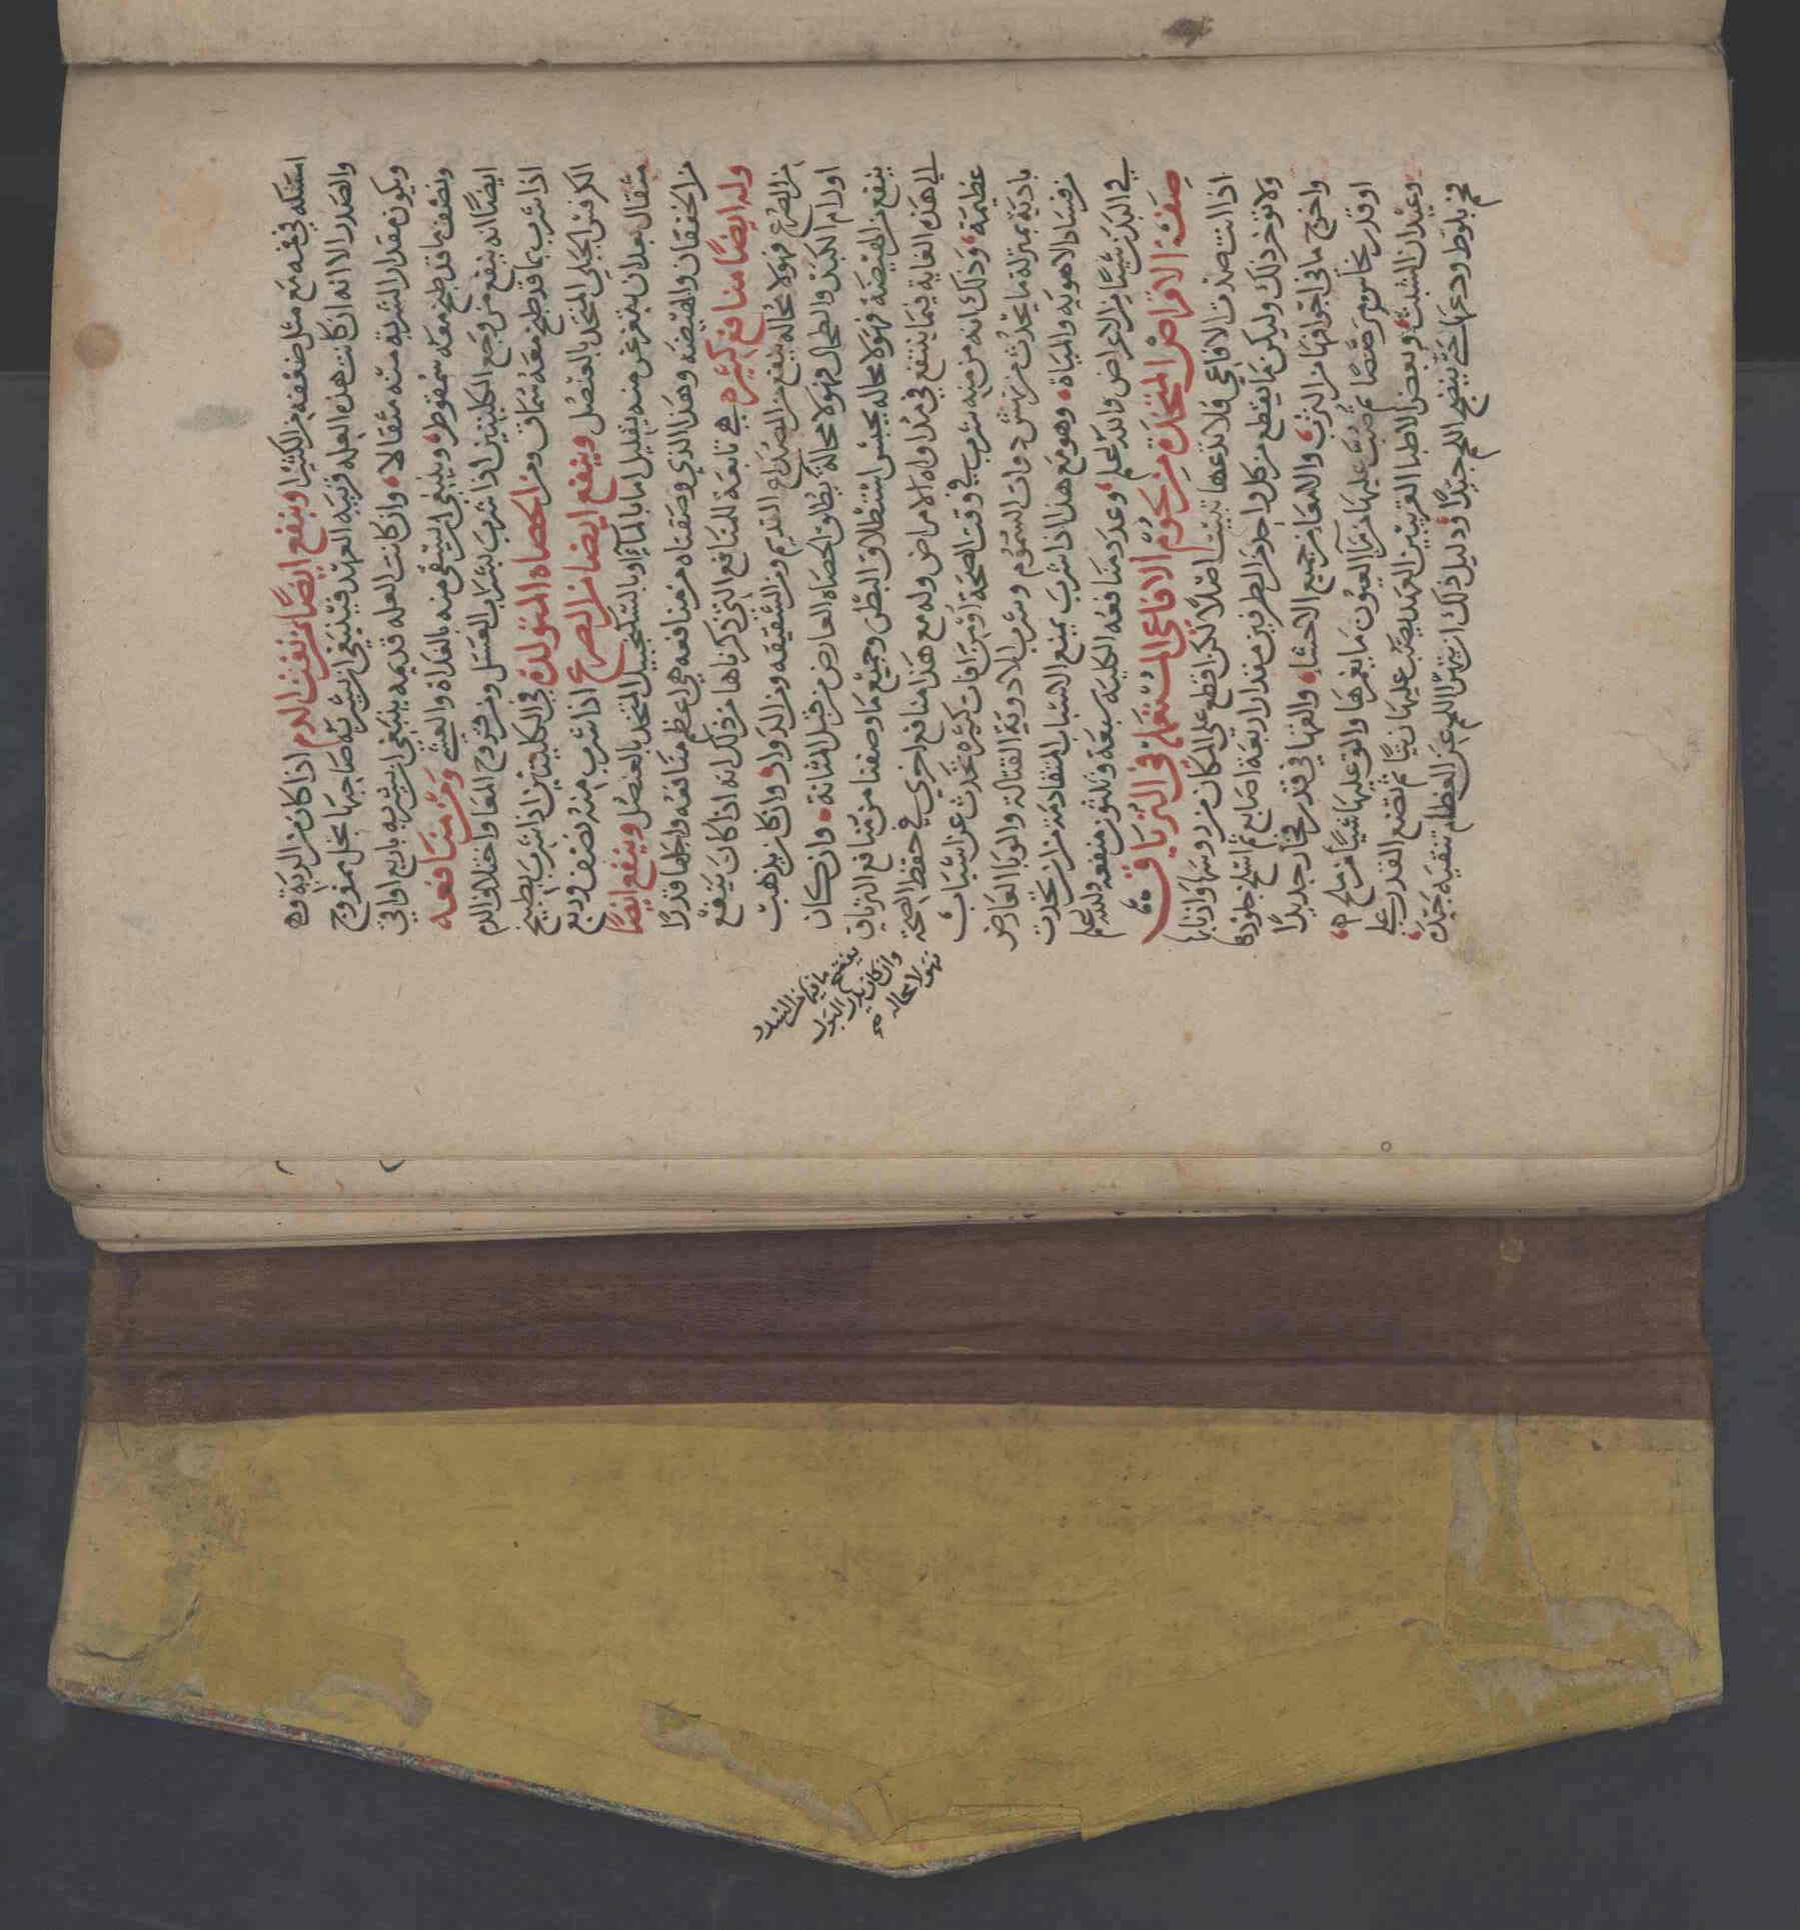 امسكه في فمه مع مثل ضعفه من الكثيرا وينفع ايضًا من نفث الدم اذا كان من الرية وه
والصدر الا انه ان كانت هذه العلة قريبة العهد فينبغي ان يشربه صاحبها بخل ممزوج
ويكون مقدار الشربة منه مثقالا وان كانت العله قديمه ينبغي ان يشربه باربع اواقي
ونصف ما قد طبخ معه سمفوطن وينبغي ان يسقى منه بالغداة والعشي ومن منافعه
ايضًا انه ينفع من وجع الكليتين اذا شرب بشراب العسل ومن قروح المعا واختلاف الدم
اذا شرب بما قد طبخ معه سماق ومن الحصاه المتولدة في الكليتين اذا شرب بطبيخ
الكرفس الجبلي المتخذ بالعنصل وينفع ايضا من الصرع اذا شرب منه نصف وربع
مثقال بعد ان يتغرغر منه بقليل اما بالماء او بالسكنجبين المتخذ بالعنصل وينفع ايضًا
من الخفقان والهيضه وهذا الذي وصفناه من منافعه هي اعظم منافعه واجلها قدرًا
وله ايضًا منافع كثيره هي تابعة للمنافع التي ذكرناها من ذلك انه اذا كان ينتفع
من الصرع فهو لا محاله ينفع من الصداع القديم ومن الشقيقه ومن الدوار وان كان يذهب
اورام الكبد والطحال فهو لا محالة يطلق الحصاه العارض من قبل المثانة وان كان
ينفع من الهيضة فهو لا محاله يحبس استطلاق البطن وجميع ما وصفنا من منافع الترياق
هي هذه الغاية فيما ينتفع في مداواه الامراض وله مع هذا منافع اخرى في حفظ الصحة
عظيمة وذلك انه من شرب في وقت الصحة اوقي من افات كثيره تحدث عن اسباب
بادية بمنزلة ما يحدث من نهش ذوات السموم وشرب الادوية القتالة والوبا العارض
من فساد الاهوية والمياه وهو مع هذا اذا شرب يمنع الاسباب المتقادمة من ان تحدث
في البدن شيئًا من الاعراض والله اعلم وعدد منافعه الكلية سبعة وثلثون منفعه والله اعلم
صفة الاقراص المتخذة من لحوم الافاعي المستعملة في الترياق
اذا انت صدت الافاعي فلا تدعها تبيت اصلًا لكن اقطع على المكان من روسها واذنابها
ولا تؤخر ذلك وليكن ما يقطع من كل واحد من الطرفين مقدار اربعة اصابع ثم اسلخ جلودها
واخرج ما في اجوافها من الثرب والامعا مع جميع الاحشاء والقها في قدر فخار جديد
او قدر نحاس مرصص ثم صب عليها من ماء العيون ما يغمرها والق عليها شيئًا من ملح
وعيدان الشبث وبعض الاطبا القريبين العهد يصب عليها زيتًا ثم تضع القدر على
فحم بلوط ودعها حتى ينضج اللحم جيدًا ودليل ذلك ان يتهرى اللحم عن العظام تنقيه جيدة
ينقي
ما فيه من السدد
وان كان يدر البول
فهو لا محاله